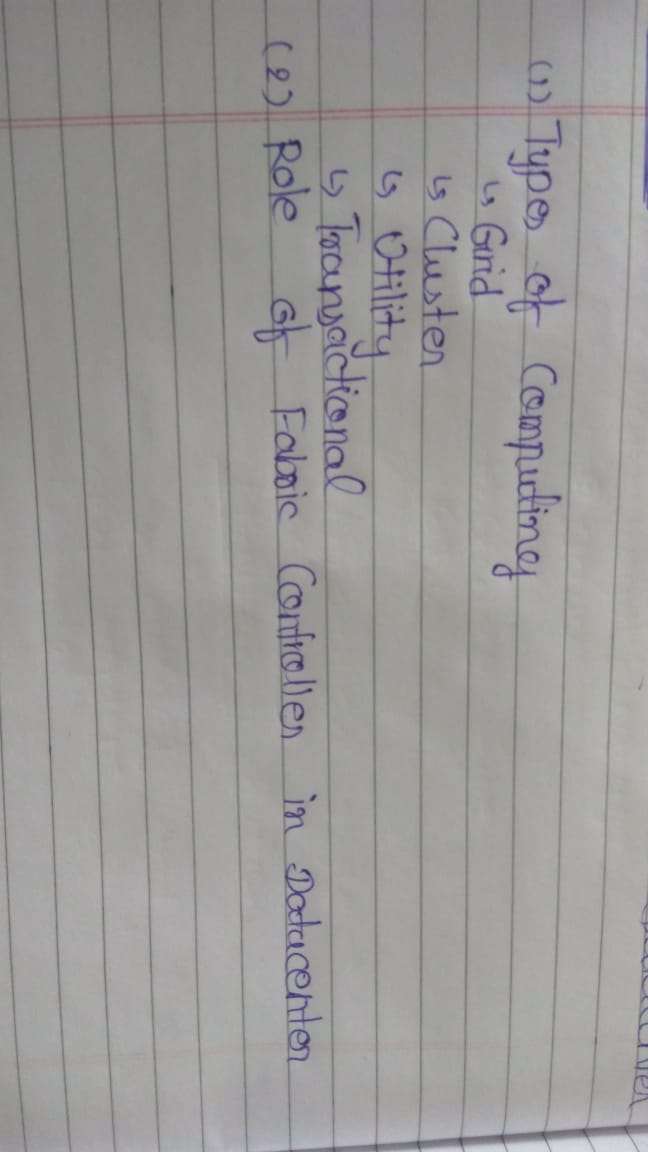 (1) Types of Computing
↳ Grid
↳ Cluster
↳ Utility
↳ Transactional
(2) Role of Fabric Controller in Datacenter